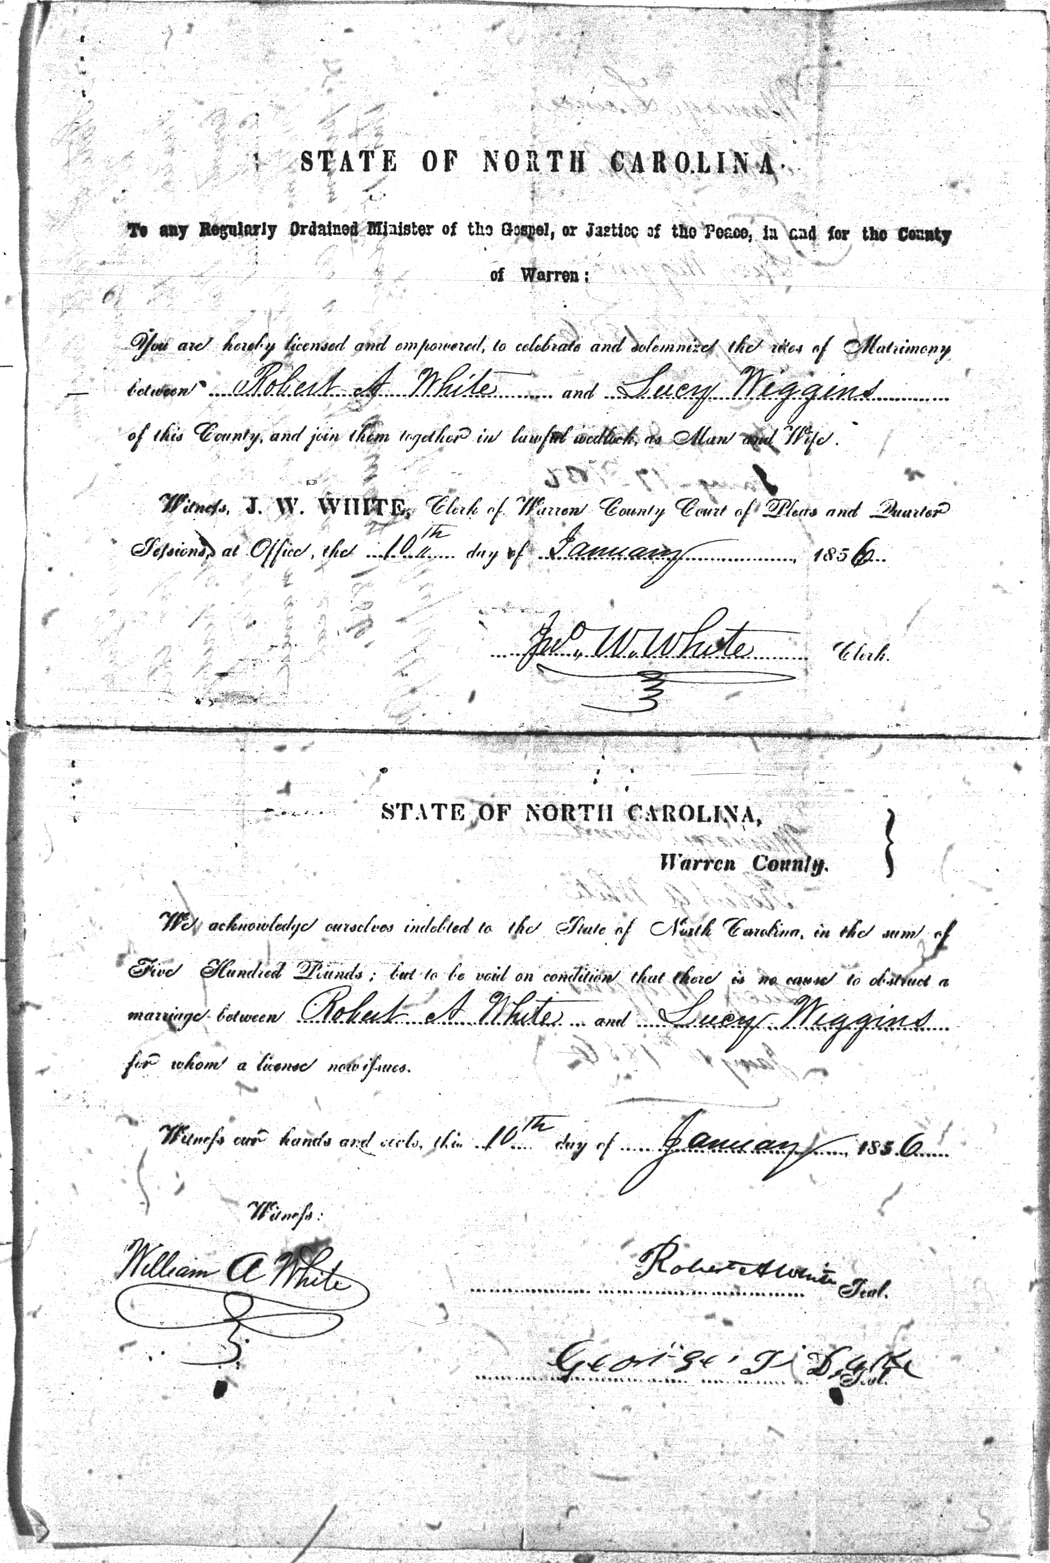 STATE OF NORTH CAROLINA.
To any Regularly Ordained Minister of the Gospel, or Justice of the Peace, in and for the County
of Warren:
You are hereby licensed and empowered, to celebrate and solemnize the rites of Matrimony
between Robert A White and Lucy Wiggins
of this County, and join them together in lawful wedlock, as Man and Wife.
Witness, J. W. WHITE, Clerk of Warren County Court of Pleas and Quarter
Sessions, at Office, the 10th day of January, 1856
Jno. W. White Clerk.
STATE OF NORTH CAROLINA,
Warren County. }
We acknowledge ourselves indebted to the State of North Carolina, in the sum of
Five Hundred Pounds; but to be void on condition that there is no cause to obstruct a
marriage between Robert A White and Lucy Wiggins
for whom a license now issues.
Witness our hands and seals, this 10th day of January, 1856
Witness:
William A White
Robert A White Seal.
George T Seal.